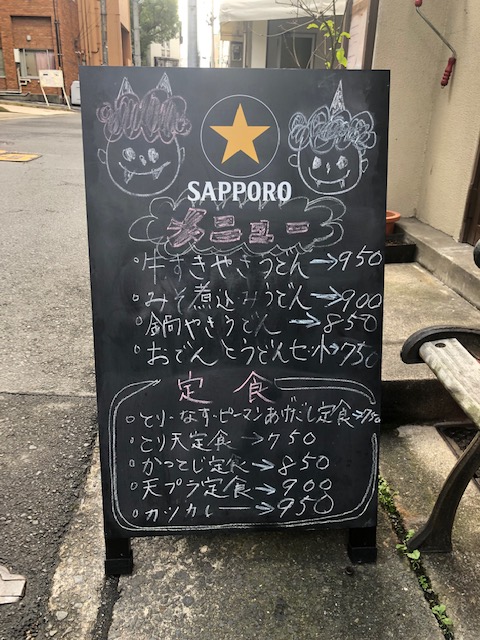 SAPPORO
メニュー
○牛すきやきうどん→950
○みそ煮込みうどん→900
○鍋やきうどん→850
○おでんとうどんセット→750
定食
○とり・なす・ピーマンあげだし定食→750
○とり天定食→750
○かつとじ定食→850
○天プラ定食→900
○カツカレー→950